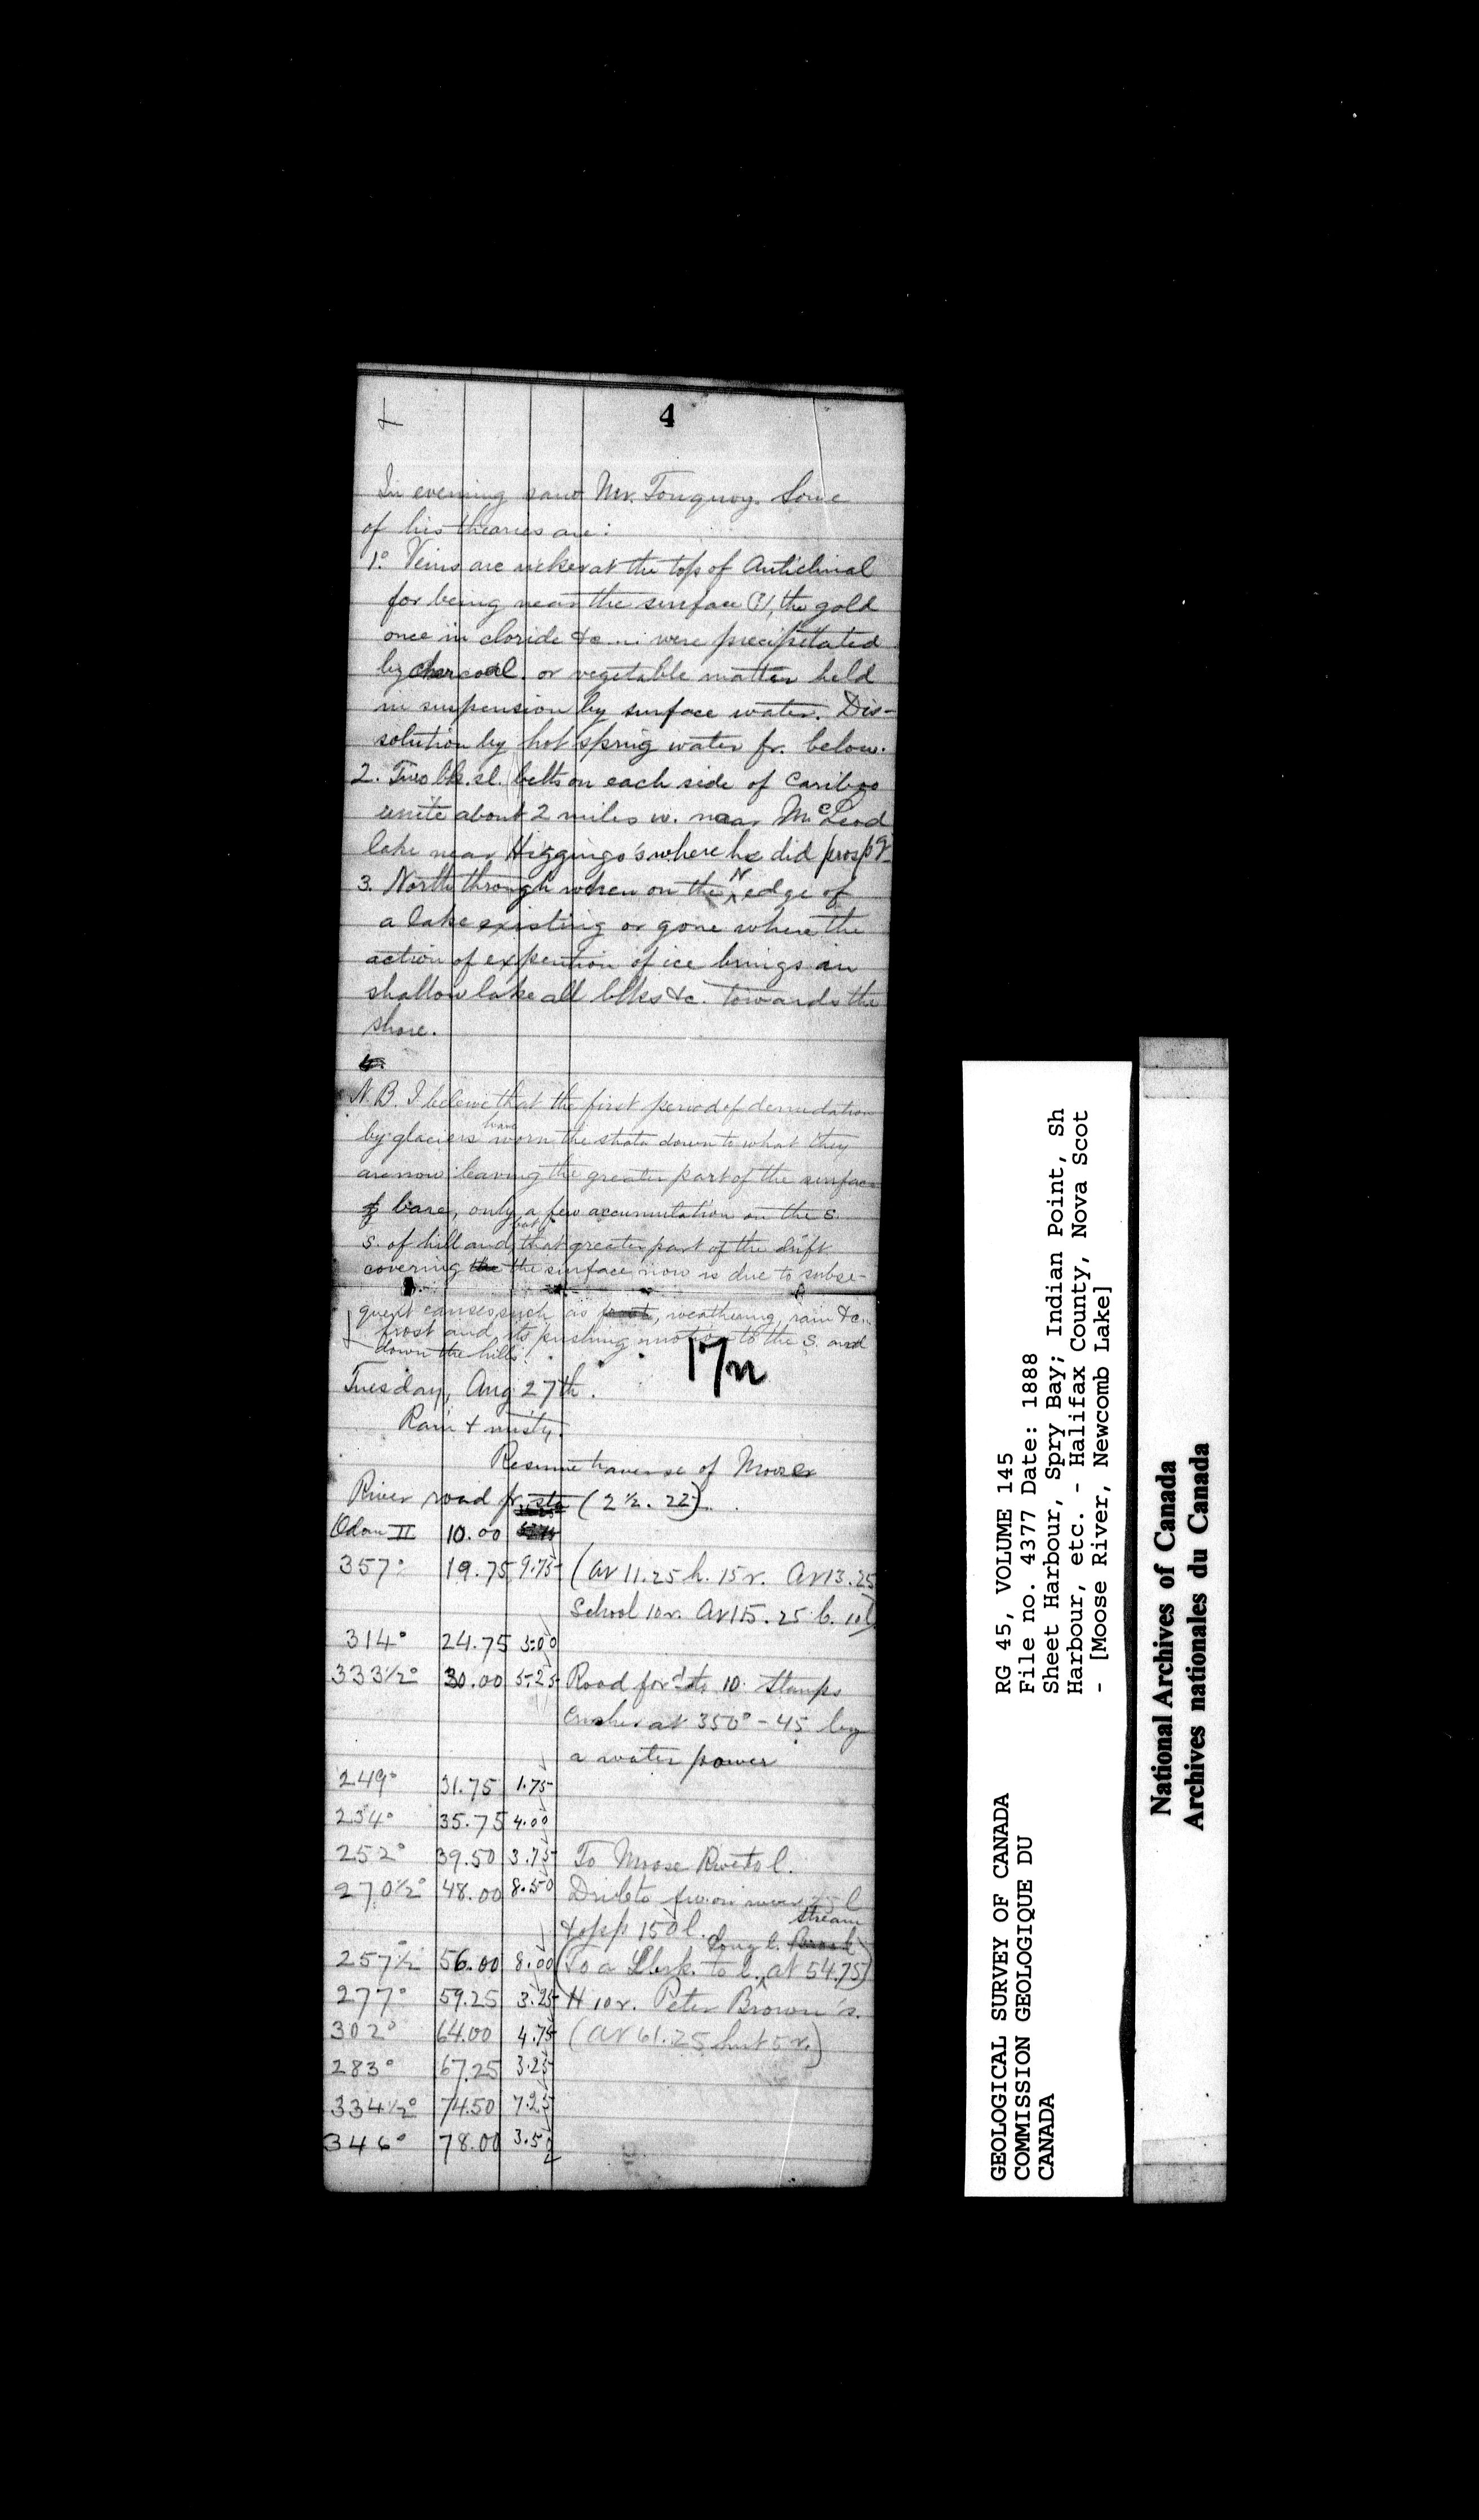 4
In evening saw Mr. Touquoy. Some
of his theories are:
1º Veins are richer at the top of Anticlinal
for being near the surface (?), the gold
once in cloride &c... were precipitated
by charcoal or vegetable matter held
in suspension by surface water. Dis-
solution by hot spring water fr. below.
2. Two bk. sl. belts on each side of Cariboo
unite about 2 miles w. near McLeod
lake near Higgings's where he did prospg
3. North through when on the N edge of
a lake existing or gone where the
action of expention of ice brings in
shallow lake all blks &c. towards the
shore.
4.
N.B. I believe that the first period of denudation
by glaciers have worn the strata down to what they
are now leaving the greater part of the surface
bare, only a few accumulation on the s.
s. of hill and but that greater part of the drift
covering the the surface now is due to subse-
quent causes, such as frost, weathering, rain &c..
frost and its pushing motion to the s. and
down the hills.
17n
Tuesday, Aug 27th.
Rain & misty.
Resume traverse of Moose
River road fr. sta (2½. 22).
Odom II 10.00
357° 19.75 9.75 (At 11.25 h. 15r. At 13.25
School 10r. At 15.25 b. 10l)
314° 24.75 5.00
333½° 30.00 5.25 Road for'd to 10 Stamps
Crusher at 350° - 45 by
a water power
249° 31.75 1.75
234° 35.75 4.00
252° 39.50 3.75 To Moose River to l.
270½° 48.00 8.50 river 25 l
& opp 150 l.
257½ 56.00 8.00 (To a brk. to l. Long l. Brook stream at 54.75)
277° 59.25 3.25 H 10r. Peter Brown's.
302° 64.00 4.75 (At 61.25 hut 5r.)
283° 67.25 3.25
334½° 74.50 7.25
346° 78.00 3.50
GEOLOGICAL SURVEY OF CANADA
COMMISSION GEOLOGIQUE DU
CANADA
RG 45, VOLUME 145
File no. 4377 Date: 1888
Sheet Harbour, Spry Bay; Indian Point, Sh
Harbour, etc. - Halifax County, Nova Scot
- [Moose River, Newcomb Lake]
National Archives of Canada
Archives nationales du Canada